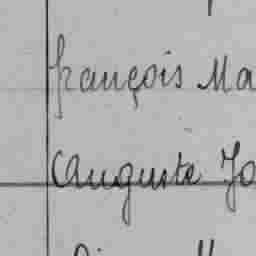 françois Ma
Auguste Jo